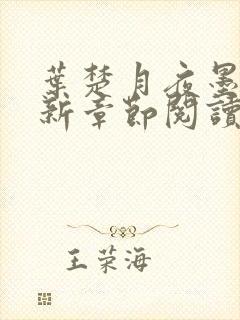 葉楚月夜墨
新章節閱讀
王荣海